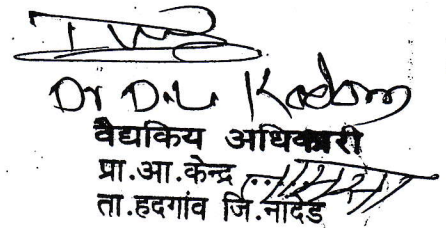 Dr D.L. Kadam
वैद्यकिय अधिकारी
प्रा.आ.केन्द्र
ता.हदगांव जि.नांदेड